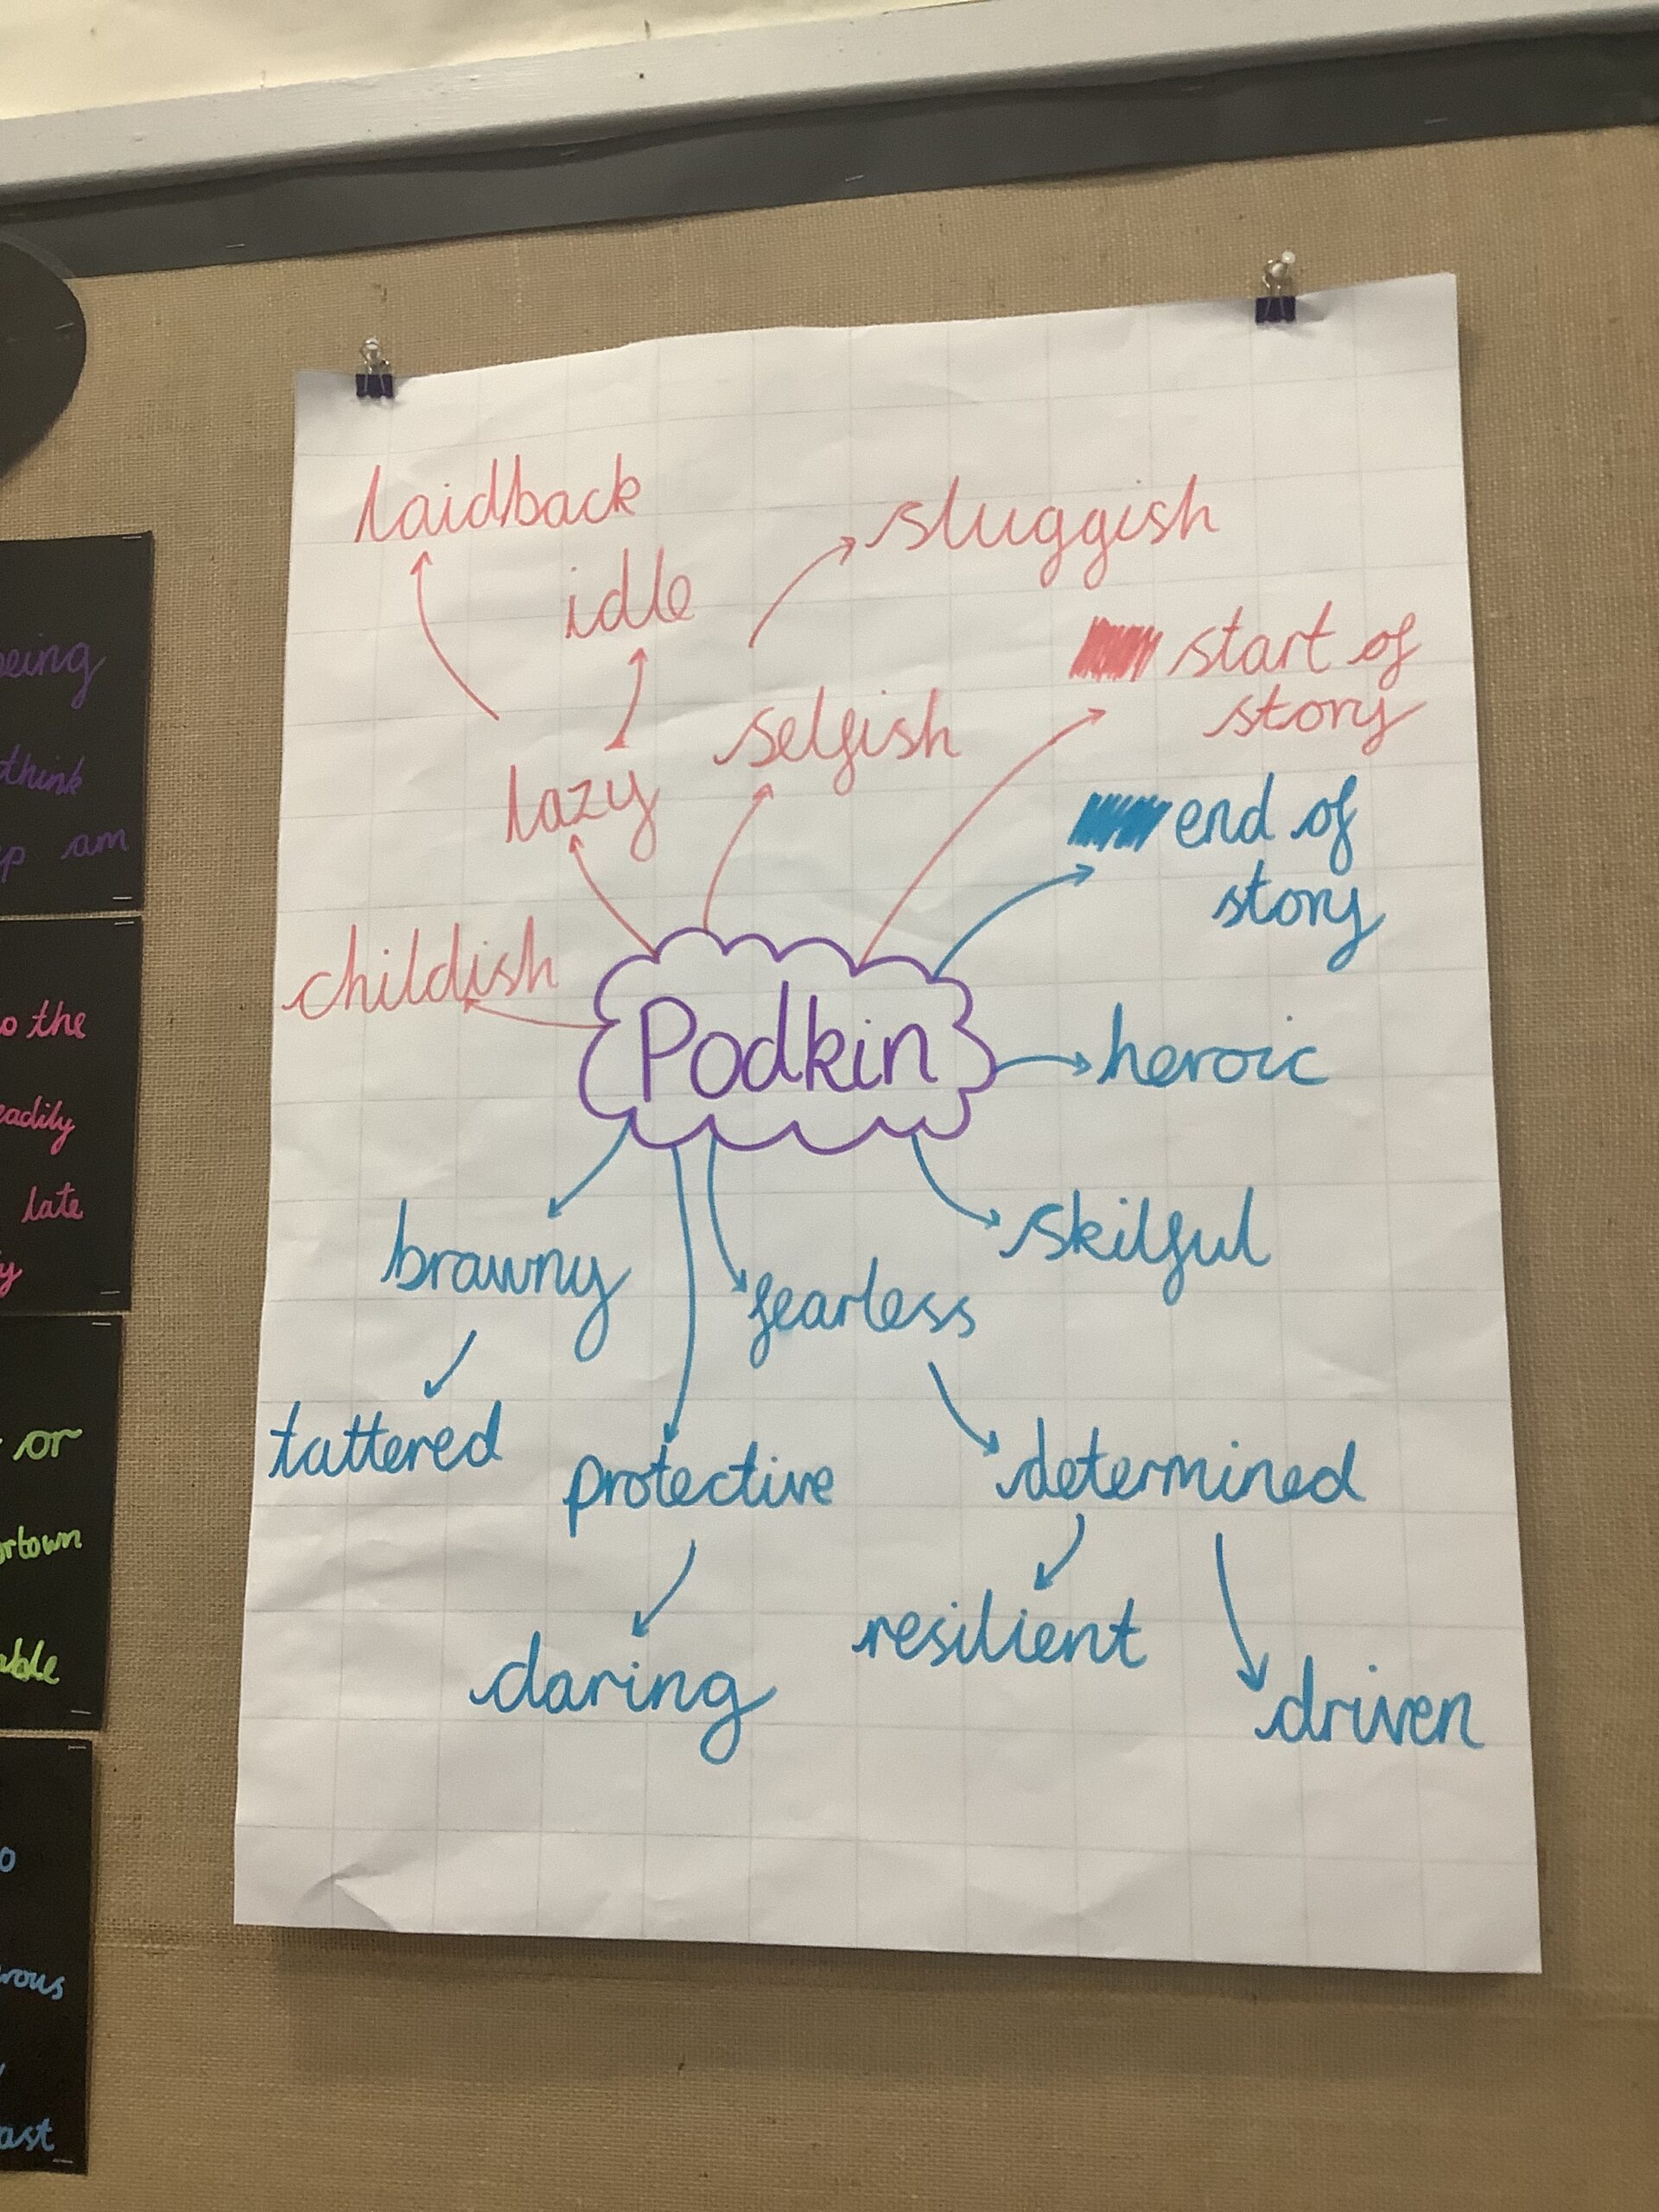 laidback
idle
sluggish
start of
story
selfish
lazy
end of
story
childish
Podkin
heroic
brawny
skilful
fearless
tattered
protective
determined
daring
resilient
driven
being
think
am
the
late
or